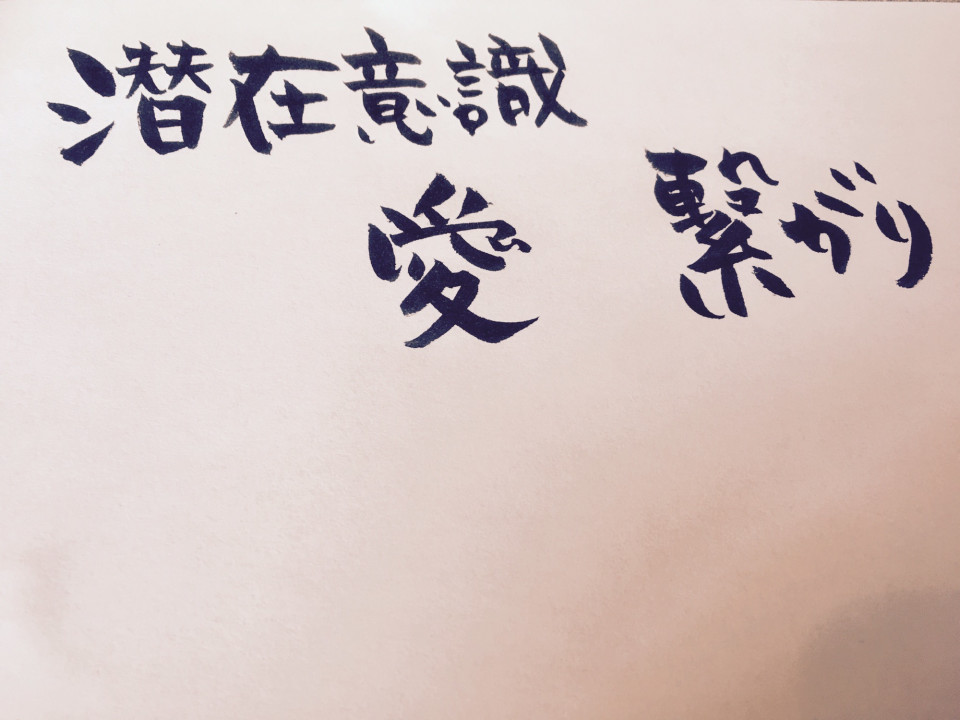 潜在意識
愛 繋がり